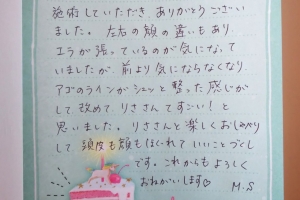 施術していただき ありがとうござい
ました。左右の顔の違いもあり
エラが張っているのが気になって
いましたが 前より気にならなくなり
アゴのラインがシュッと整った感じが
して改めて りささんてすごい！と
思いました。りささんと楽しくおしゃべり
して 頭皮も顔もほぐれていいことづくし
です。これからもよろしく
おねがいします♡ M.S